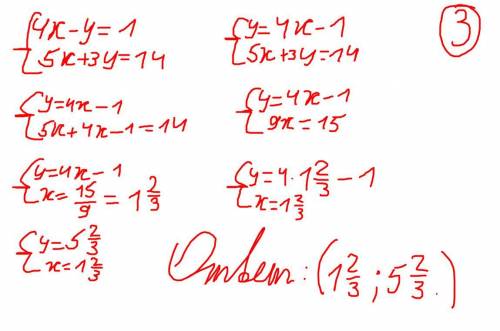 3
{4x-y=1
5x+3y=14
{y=4x-1
5x+3y=14
{y=4x-1
5x+4x-1=14
{y=4x-1
9x=15
{y=4x-1
x=15/9=1 2/3
{y=4·1 2/3-1
x=1 2/3
{y=5 2/3
x=1 2/3
Ответ: (1 2/3; 5 2/3.)